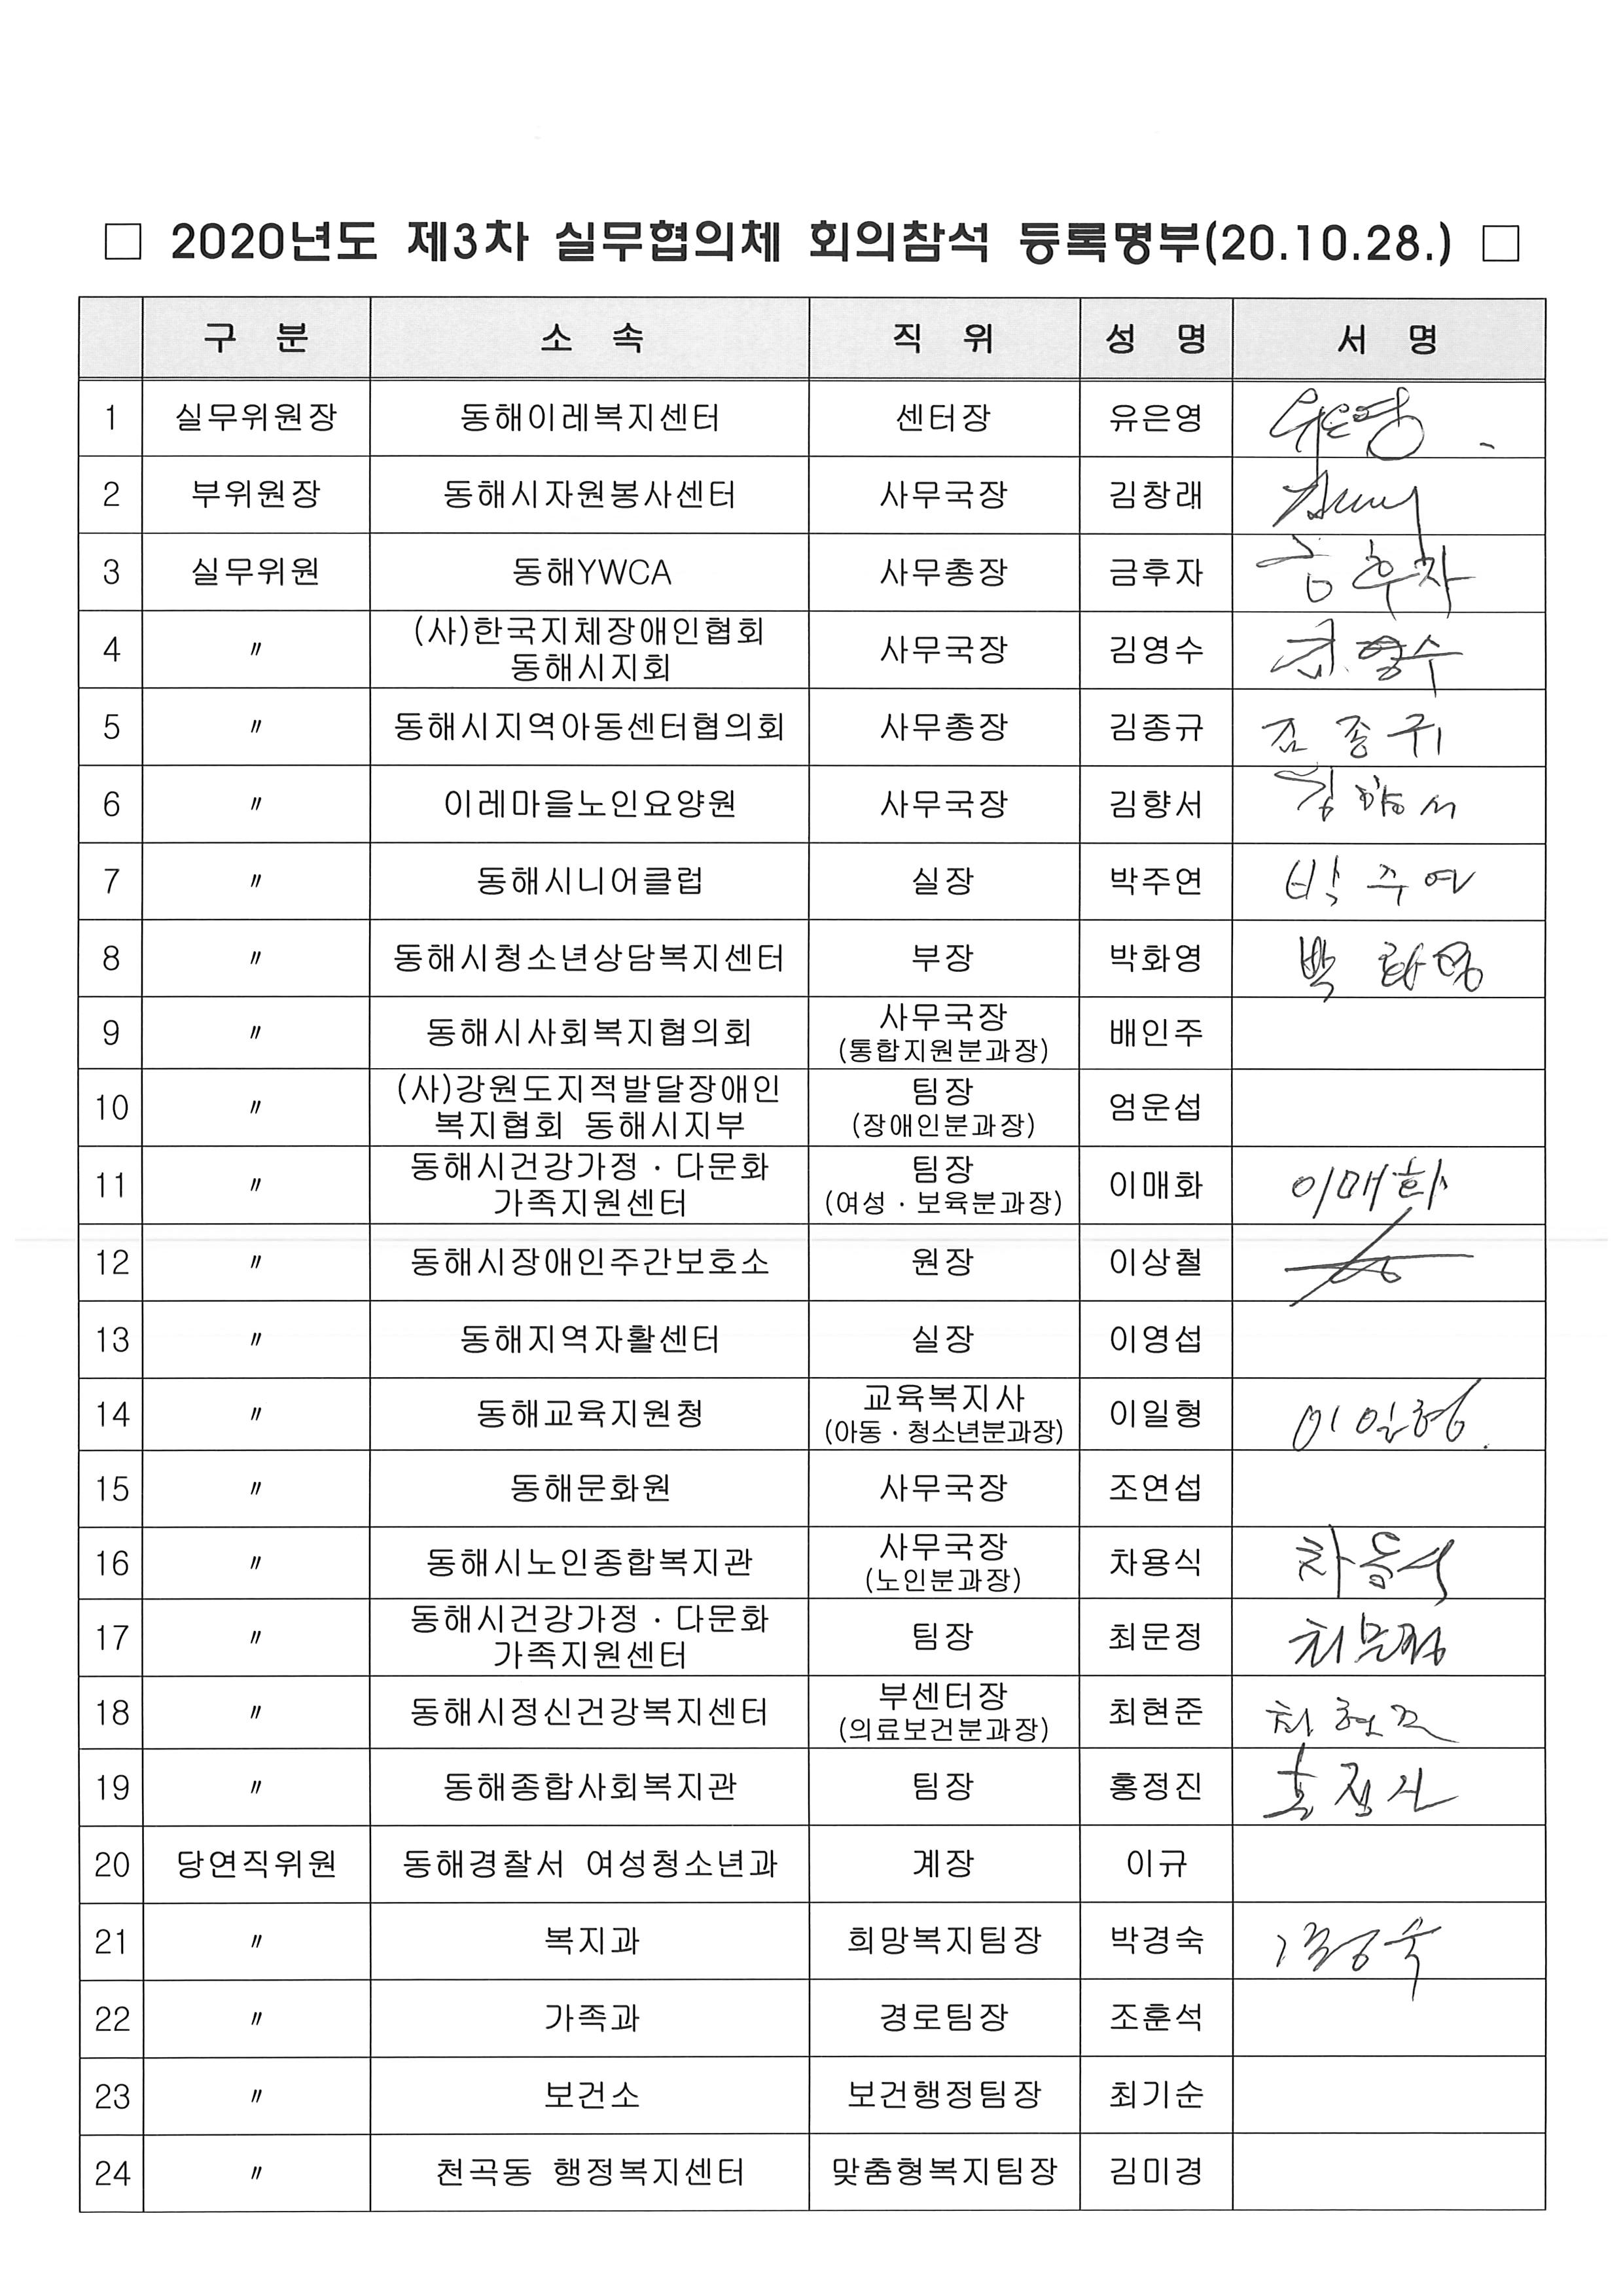 □ 2020년도 제3차 실무협의체 회의참석 등록명부(20.10.28.) □
구 분 소 속 직 위 성 명 서 명
1 실무위원장 동해이레복지센터 센터장 유은영 유은영
2 부위원장 동해시자원봉사센터 사무국장 김창래
3 실무위원 동해YWCA 사무총장 금후자 금후자
4 〃 (사)한국지체장애인협회
동해시지회 사무국장 김영수 김영수
5 〃 동해시지역아동센터협의회 사무총장 김종규 김종귀
6 〃 이레마을노인요양원 사무국장 김향서 김향서
7 〃 동해시니어클럽 실장 박주연 박주연
8 〃 동해시청소년상담복지센터 부장 박화영 박화영
9 〃 동해시사회복지협의회 사무국장
(통합지원분과장) 배인주
10 〃 (사)강원도지적발달장애인
복지협회 동해시지부 팀장
(장애인분과장) 엄운섭
11 〃 동해시건강가정·다문화
가족지원센터 팀장
(여성·보육분과장) 이매화 이매화
12 〃 동해시장애인주간보호소 원장 이상철
13 〃 동해지역자활센터 실장 이영섭
14 〃 동해교육지원청 교육복지사
(아동·청소년분과장) 이일형 이일형.
15 〃 동해문화원 사무국장 조연섭
16 〃 동해시노인종합복지관 사무국장
(노인분과장) 차용식 차용식
17 〃 동해시건강가정·다문화
가족지원센터 팀장 최문정 최문정
18 〃 동해시정신건강복지센터 부센터장
(의료보건분과장) 최현준 최현준
19 〃 동해종합사회복지관 팀장 홍정진 홍정진
20 당연직위원 동해경찰서 여성청소년과 계장 이규
21 〃 복지과 희망복지팀장 박경숙
22 〃 가족과 경로팀장 조훈석
23 〃 보건소 보건행정팀장 최기순
24 〃 천곡동 행정복지센터 맞춤형복지팀장 김미경